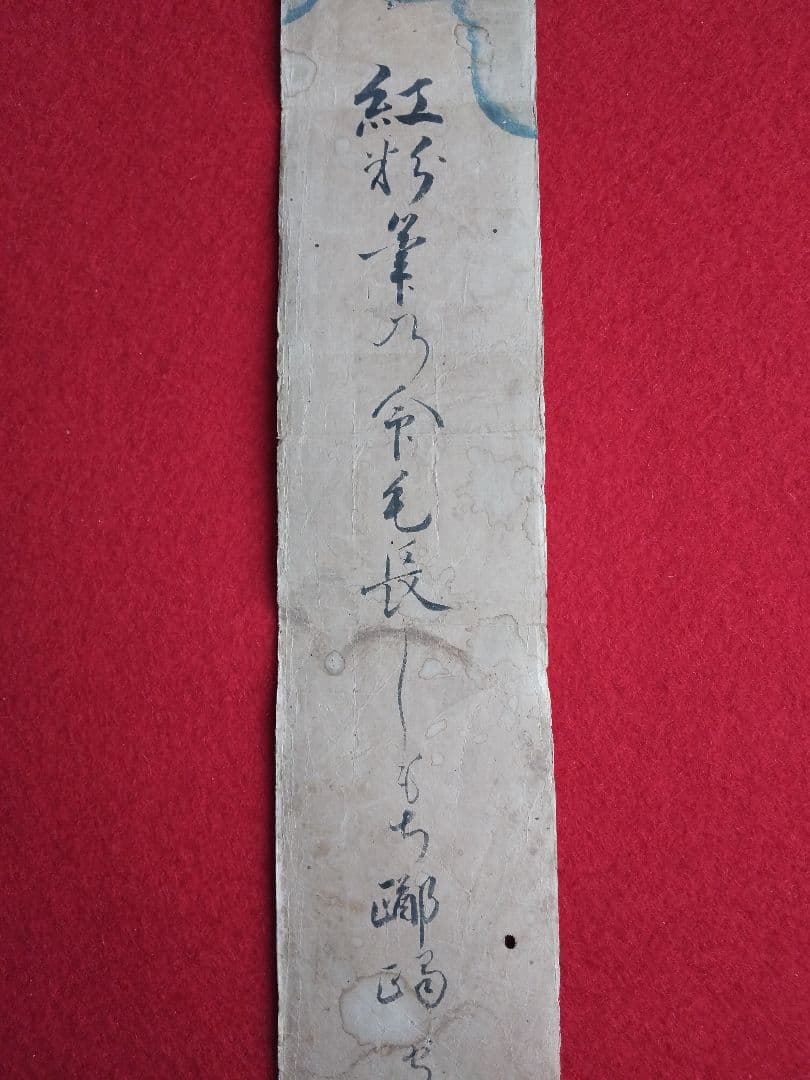 紅粉筆乃命毛長しもち躑躅